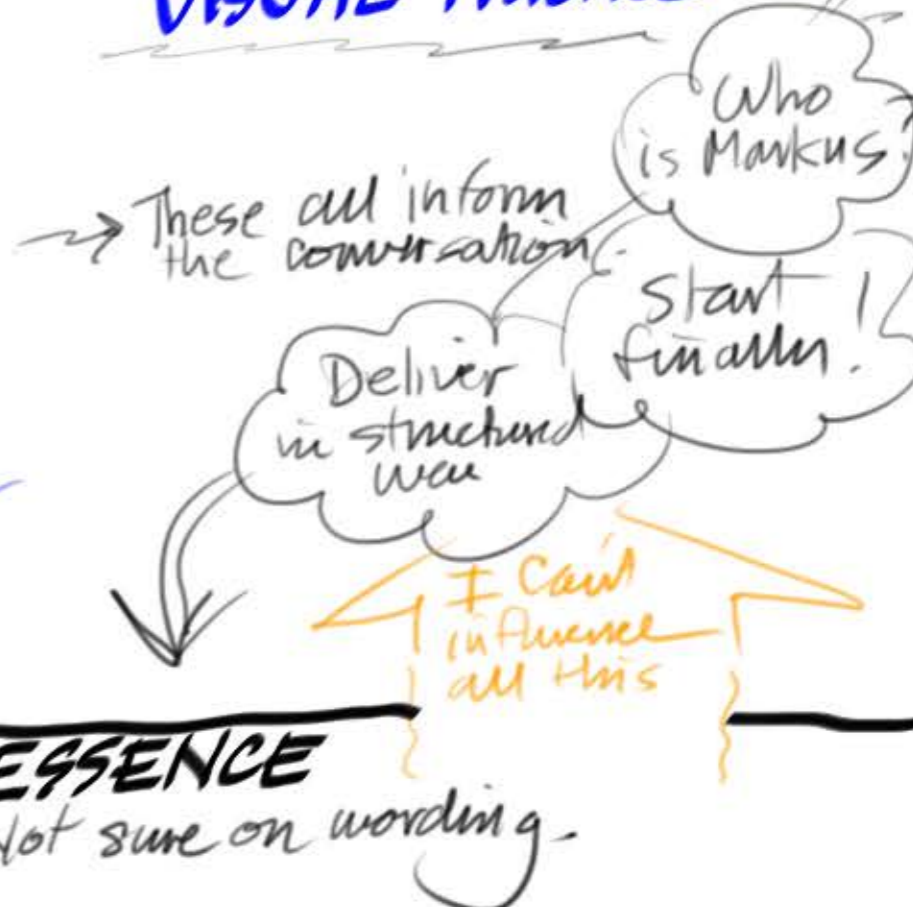 VISUAL
Who
is Markus?
→ These all inform
the conversation.
Start
finally!
Deliver
in structured
way
I Can't
influence
all this
ESSENCE
Not sure on wording.